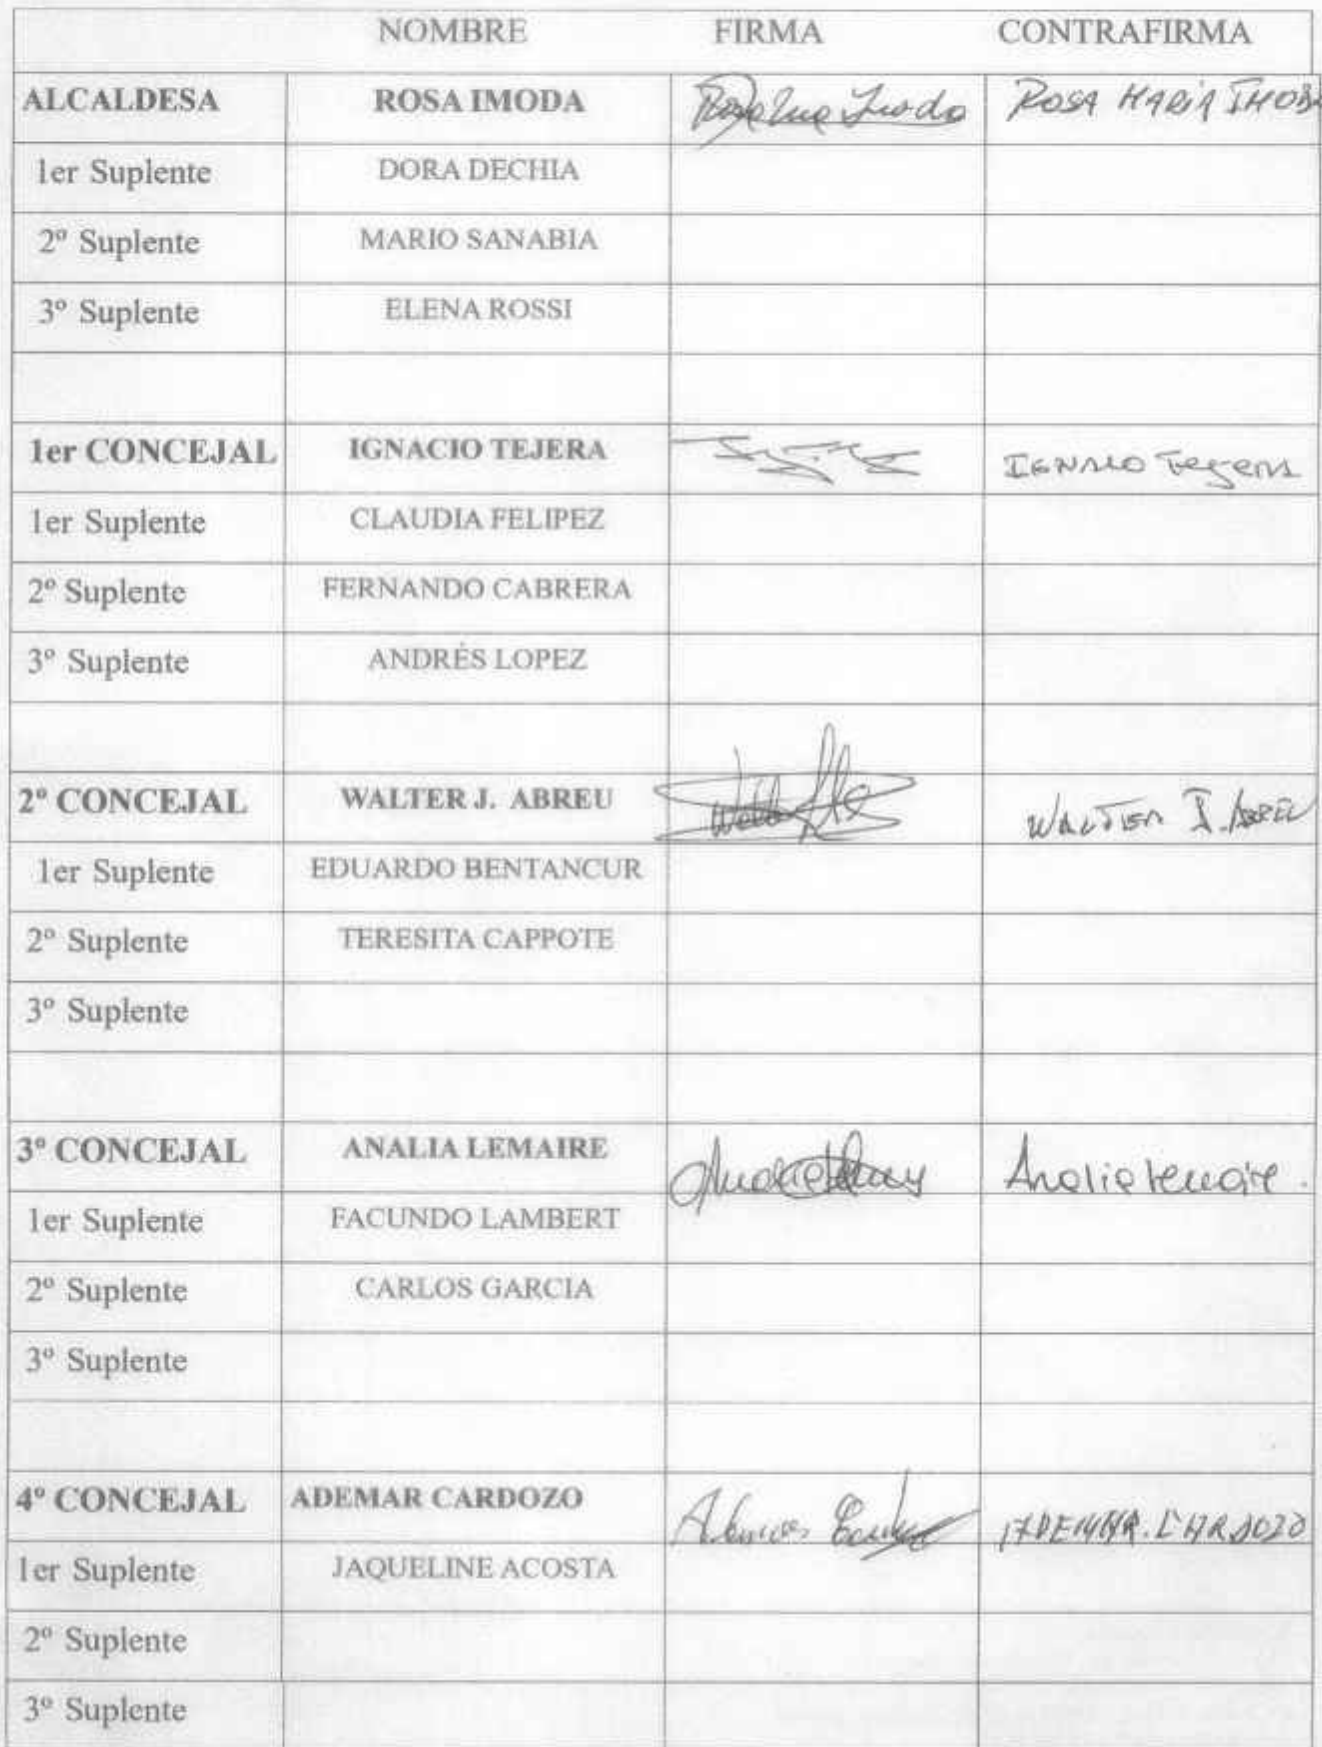 NOMBRE FIRMA CONTRAFIRMA
ALCALDESA ROSA IMODA ROSA MARIA IMODA
1er Suplente DORA DECHIA
2º Suplente MARIO SANABIA
3º Suplente ELENA ROSSI
1er CONCEJAL IGNACIO TEJERA IGNACIO Tejera
1er Suplente CLAUDIA FELIPEZ
2º Suplente FERNANDO CABRERA
3º Suplente ANDRÉS LOPEZ
2º CONCEJAL WALTER J. ABREU WALTER J. ABREU
1er Suplente EDUARDO BENTANCUR
2º Suplente TERESITA CAPPOTE
3º Suplente
3º CONCEJAL ANALIA LEMAIRE Analia Lemaire.
1er Suplente FACUNDO LAMBERT
2º Suplente CARLOS GARCIA
3º Suplente
4º CONCEJAL ADEMAR CARDOZO ADEMAR. CARDOZO
1er Suplente JAQUELINE ACOSTA
2º Suplente
3º Suplente